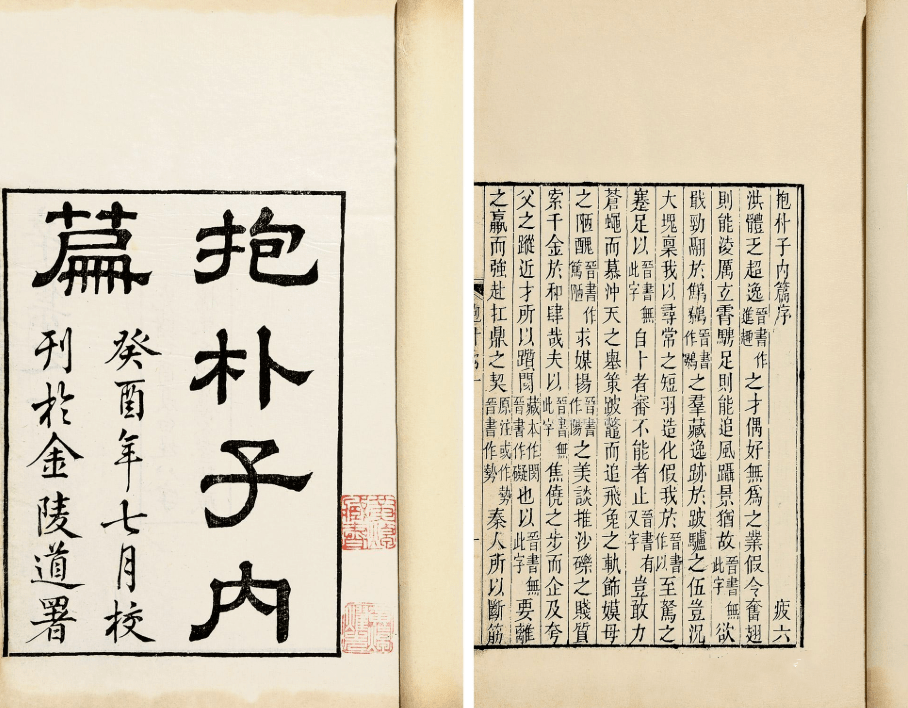 抱朴子内
篇
癸酉年七月校
刊於金陵道署
抱朴子内篇序 疲六
洪體乏超逸晉書作進趣之才偶好無爲之業假令奮翅
則能淩厲玄霄騁足則能追風躡景猶故晉書無此字欲
戢勁翮於鷦鷯晉書作鷃之羣藏逸跡於跛驢之伍豈況
大塊稟我以尋常之短羽造化假我於晉書作以至駑之
蹇足以晉書無此字自卜者審不能者止晉書有又字豈敢力
蒼蠅而慕沖天之舉策跛鼈而追飛兔之軌飾嫫母
之陋醜晉書作篤陋求媒揚晉書作陽之美談推沙礫之賤質
索千金於和肆哉夫以晉書無此字焦僥之步而企及夸
父之蹤近才所以躓閡藏本作閔晉書作礙也以晉書無此字要離
之羸而強赴扛鼎之契原注或作勢晉書作勢秦人所以斷筋